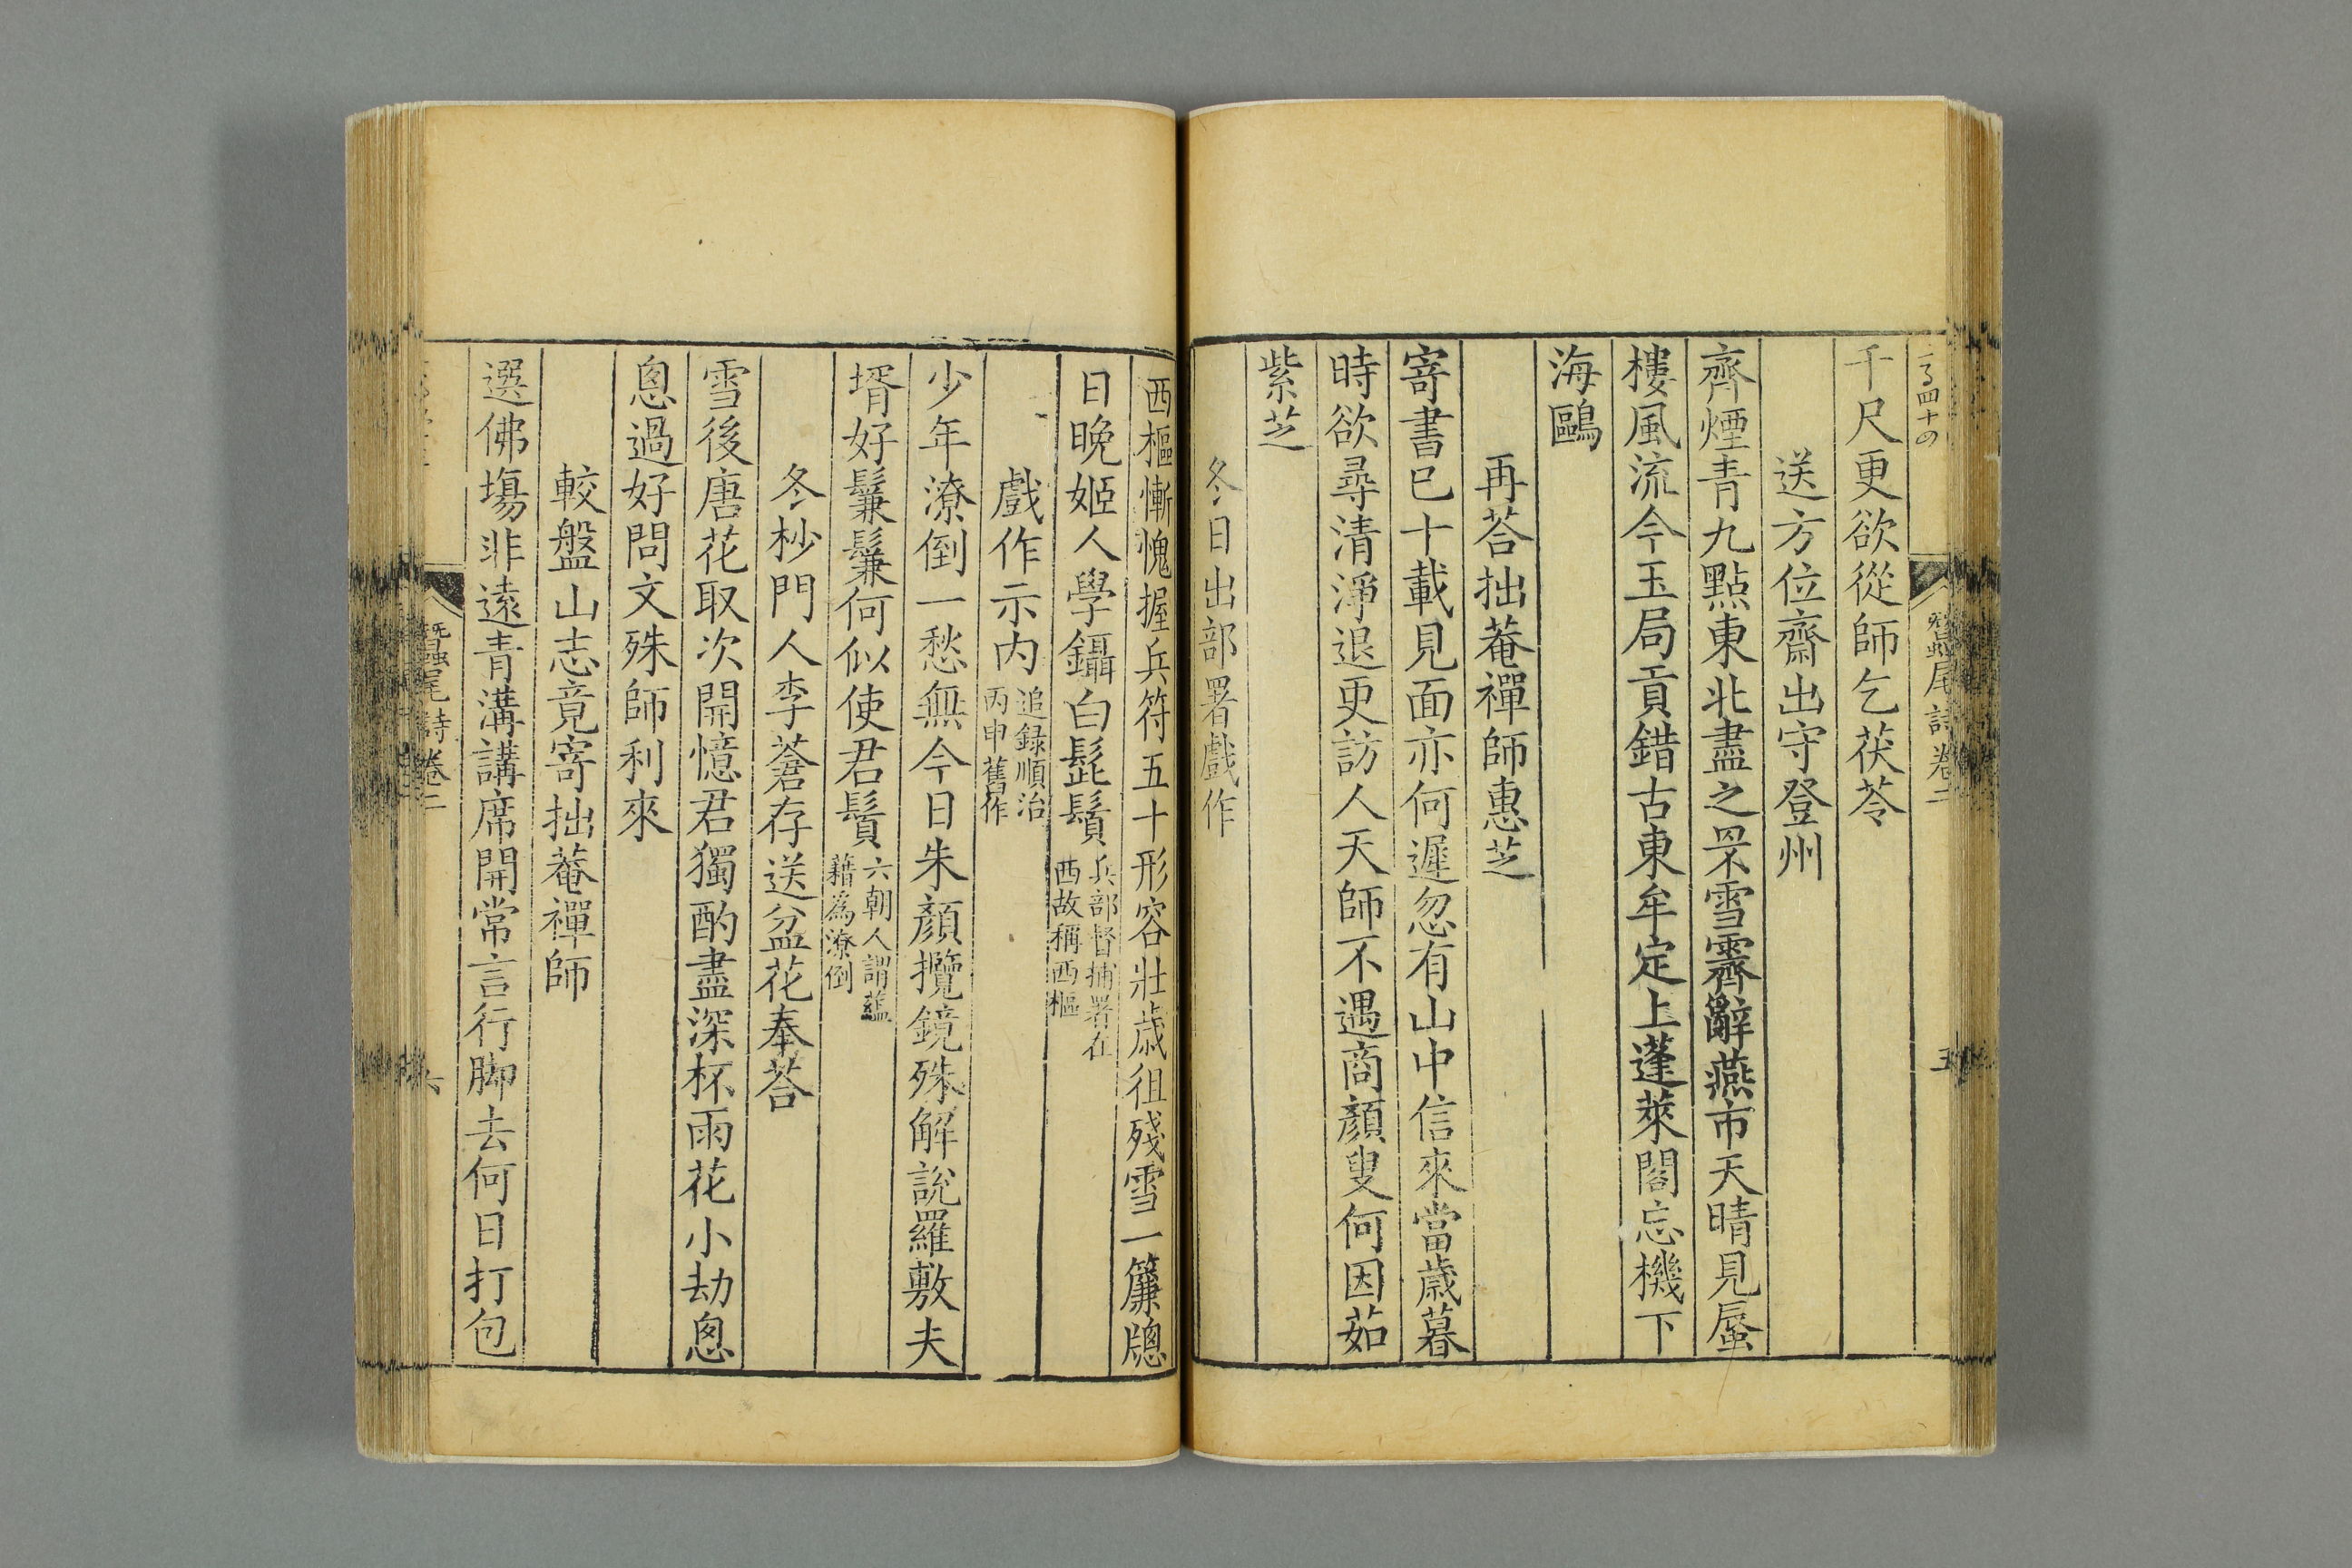 蠶尾詩卷二
五
千尺更欲從師乞茯苓
送方位齋出守登州
齊煙青九點東北盡之罘雪霽辭燕市天晴見蜃
樓風流今玉局貢錯古東牟定上蓬萊閣忘機下
海鷗
再荅拙菴禪師惠芝
寄書已十載見面亦何遲忽有山中信來當歲暮
時欲尋清淨退更訪人天師不遇商顏叟何因茹
紫芝
冬日出部署戲作
西樞慚愧握兵符五十形容壯歲徂殘雪一簾牕
日晚姬人學鑷白髭鬚兵部督捕署在
西故稱西樞
戲作示内追録順治
丙申舊作
少年潦倒一愁無今日朱顏攬鏡殊解說羅敷夫
壻好鬑鬑何似使君鬚六朝人謂蘊
藉為潦倒
冬杪門人李蒼存送盆花奉荅
雪後唐花取次開憶君獨酌盡深杯雨花小劫悤
悤過好問文殊師利來
較盤山志竟寄拙菴禪師
選佛塲非遠青溝講席開常言行脚去何日打包
蠶尾詩卷二
六